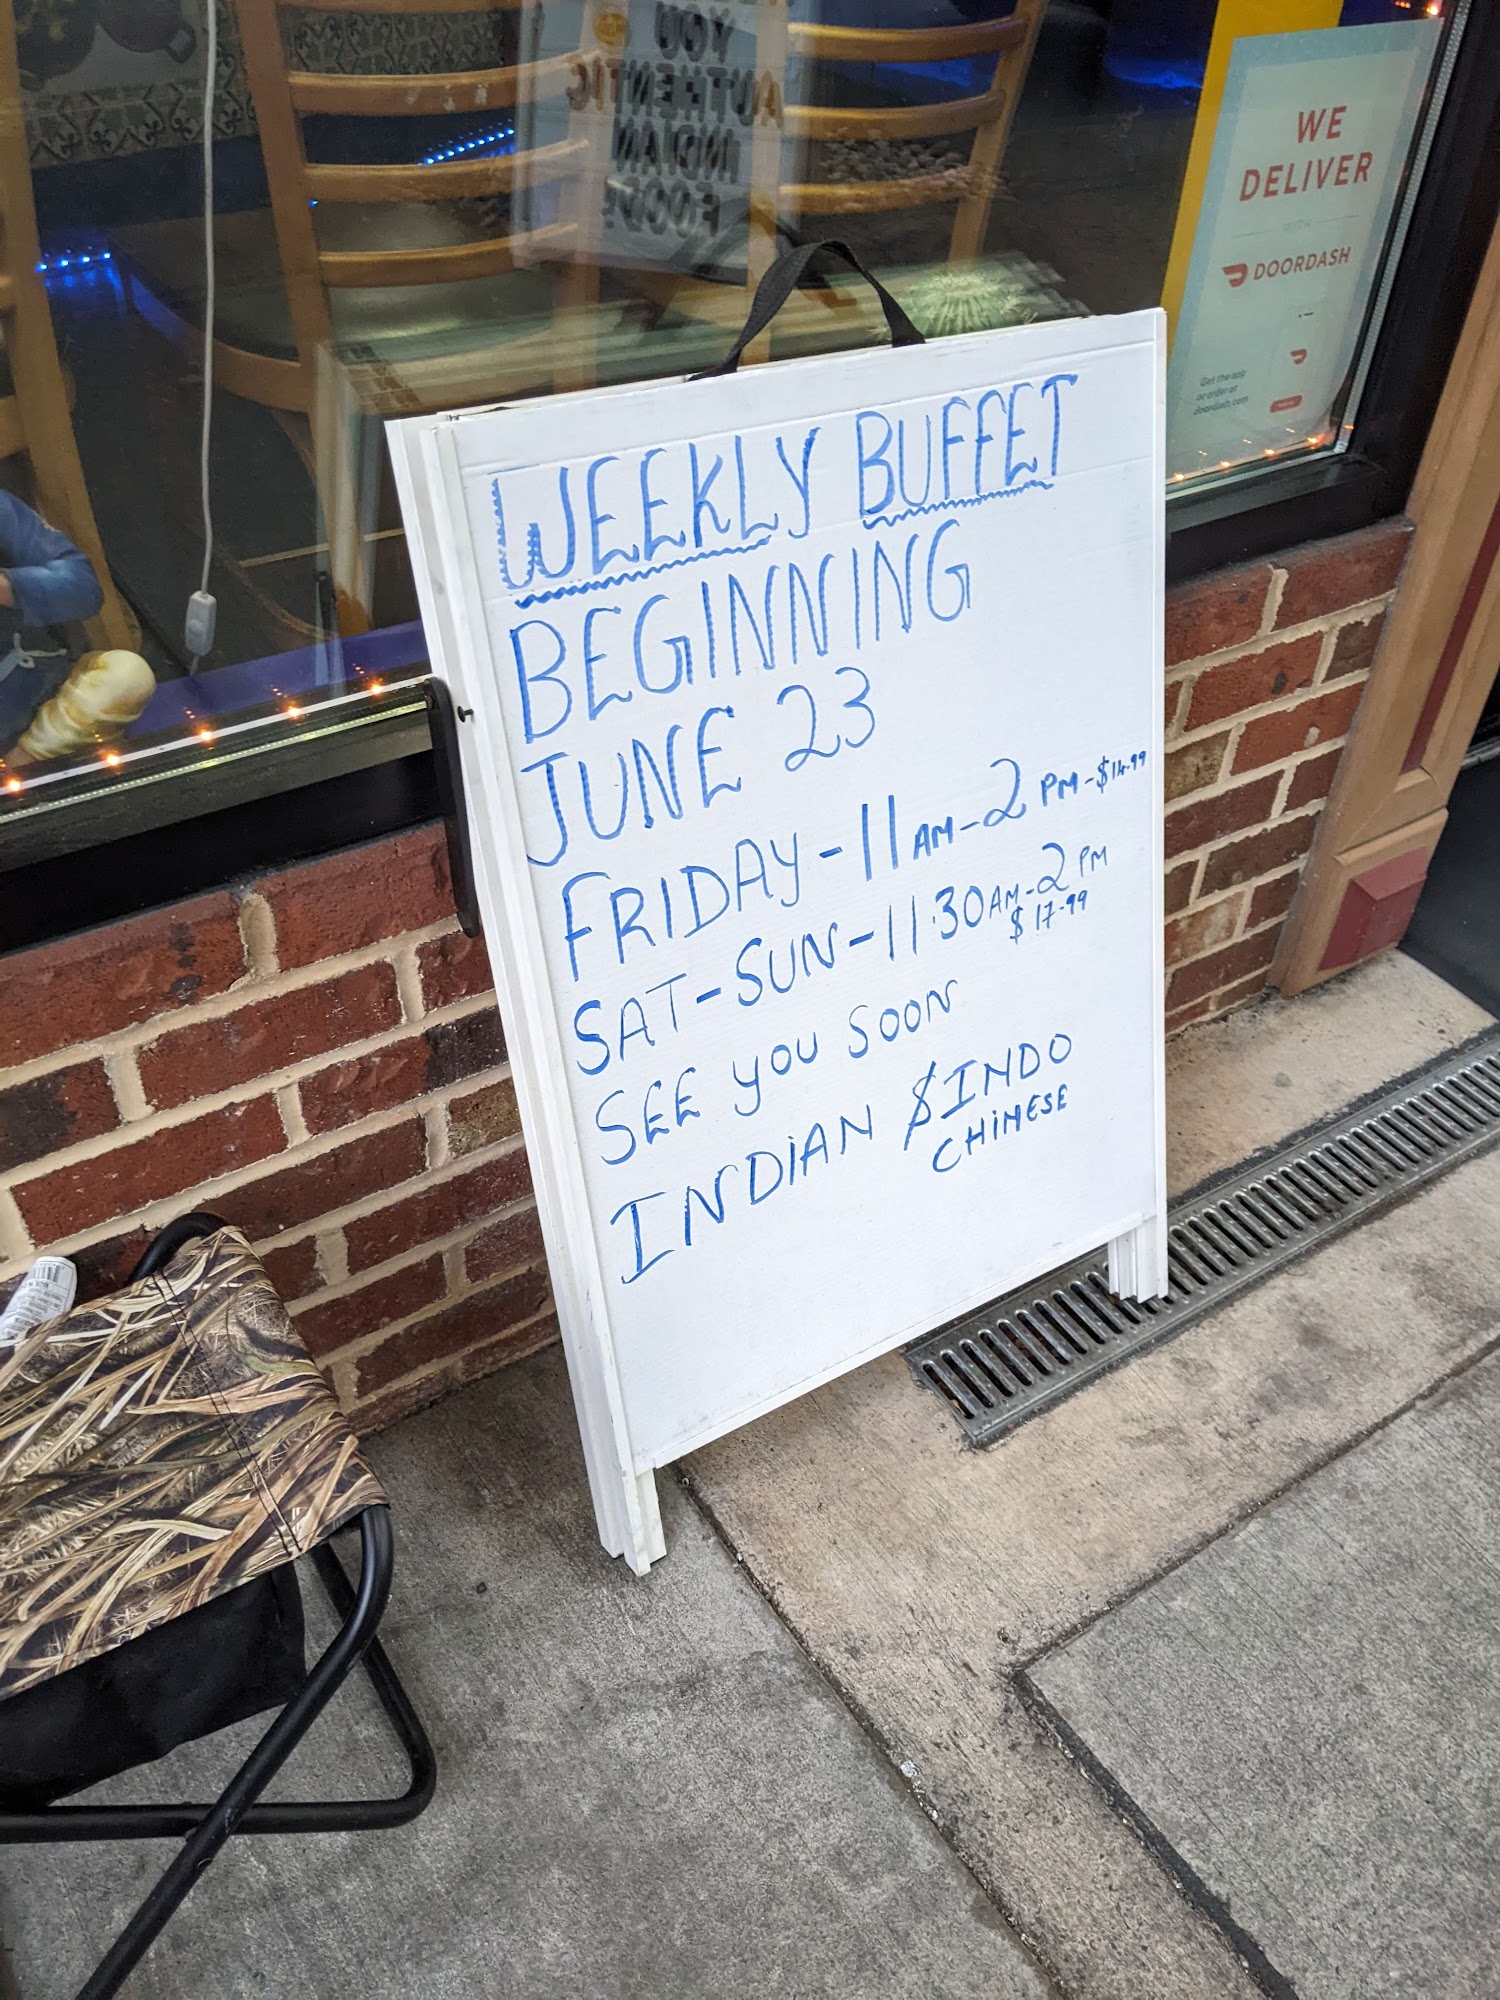 YOU
AUTHENTIC
INDIAN
FOOD!
WE
DELIVER
WITH
DOORDASH
Get the app
or order at
doordash.com
WEEKLY BUFFET
BEGINNING
JUNE 23
FRIDAY - 11 AM - 2 PM - $14.99
SAT - SUN - 11:30 AM - 2 PM
$17.99
SEE YOU SOON
INDIAN & INDO
CHINESE